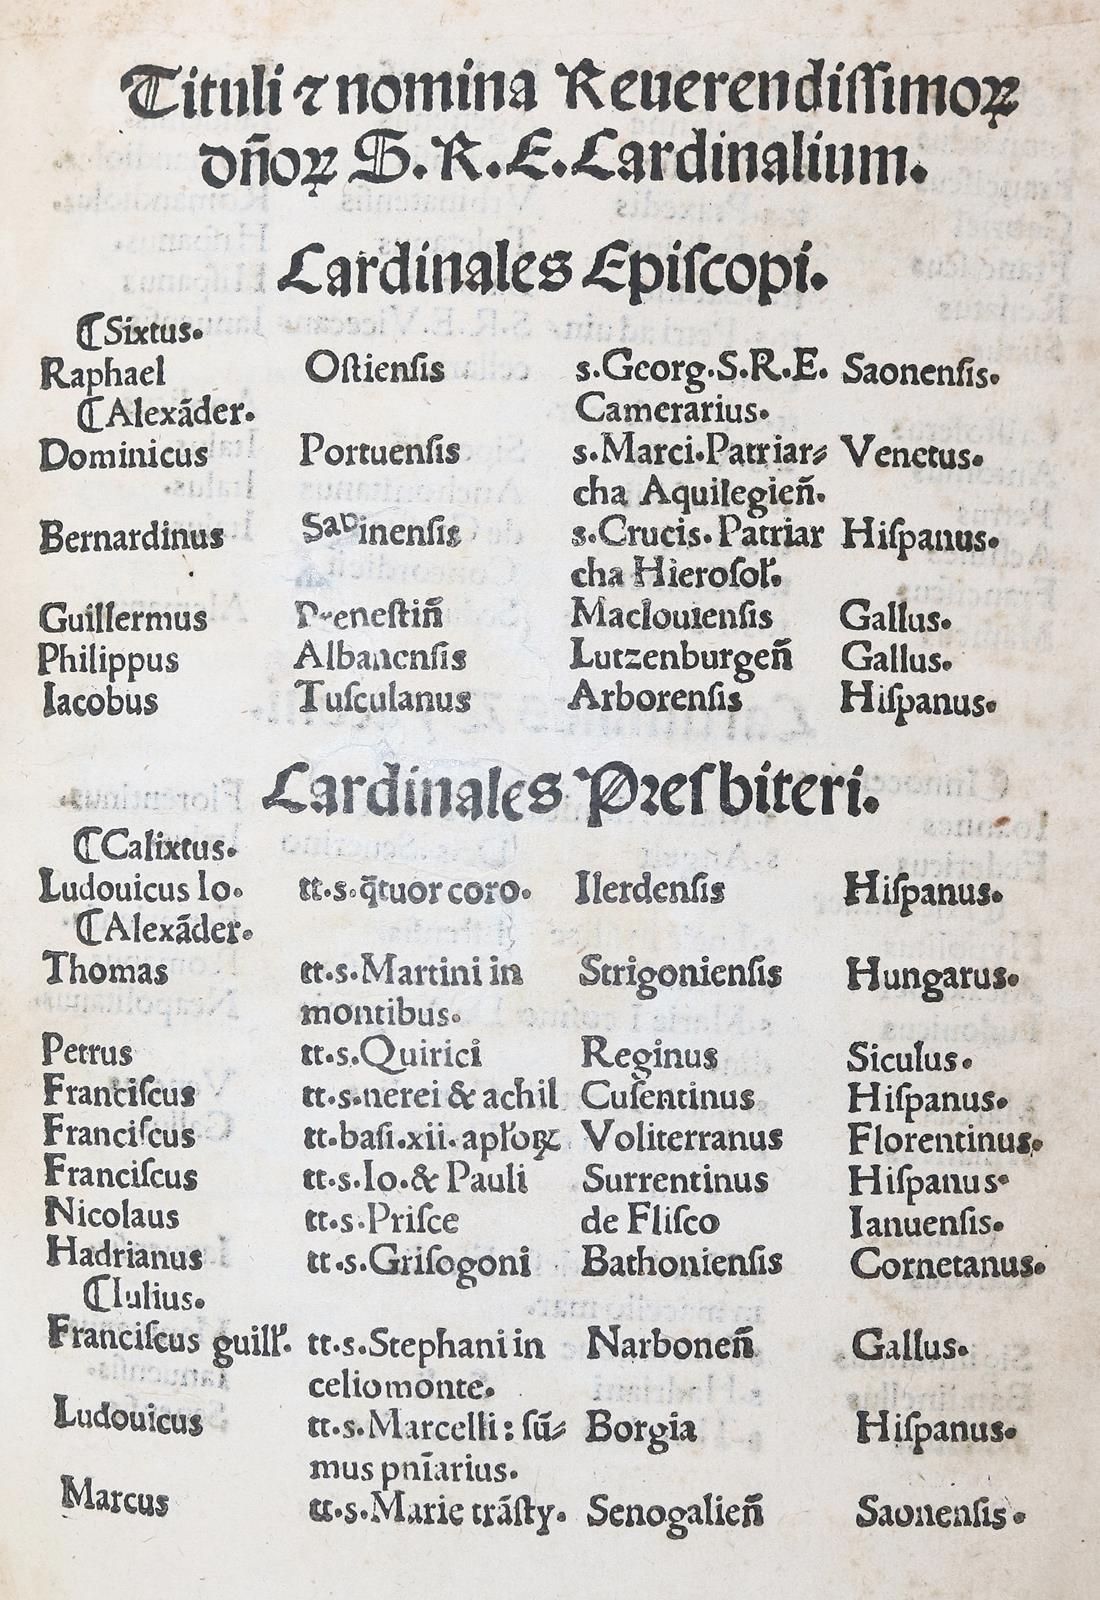 Tituli ⁊ nomina Reuerendiſſimoꝝ
dñoꝝ S.R.E.Cardinalium.
Cardinales Epiſcopi.
⁋Sixtus.
Raphael Oſtienſis s.Georg.S.R.E. Saonenſis.
⁋Alexāder. Camerarius.
Dominicus Portuenſis s.Marci.Patriar⸗ Venetus.
cha Aquilegien̄.
Bernardinus Sabinenſis s.Crucis.Patriar Hiſpanus.
cha Hieroſoł.
Guillermus Preneſtin̄ Maclouienſis Gallus.
Philippus Albanenſis Lutzenburgen̄ Gallus.
Iacobus Tuſculanus Arborenſis Hiſpanus.
Cardinales Preſbiteri.
⁋Calixtus.
Ludouicus Io. tt.s.q̄tuor coro. Ilerdenſis Hiſpanus.
⁋Alexāder.
Thomas tt.s.Martini in Strigonienſis Hungarus.
montibus.
Petrus tt.s.Quirici Reginus Siculus.
Franciſcus tt.s.nerei & achil Cuſentinus Hiſpanus.
Franciſcus tt.baſi.xii.apłoꝝ Voliterranus Florentinus.
Franciſcus tt.s.Io.& Pauli Surrentinus Hiſpanus.
Nicolaus tt.s.Priſce de Fliſco Ianuenſis.
Hadrianus tt.s.Griſogoni Bathonienſis Cornetanus.
⁋Iulius.
Franciſcus guilł. tt.s.Stephani in Narbonen̄ Gallus.
celio monte.
Ludouicus tt.s.Marcelli: ſū⸗ Borgia Hiſpanus.
mus pnīarius.
Marcus tt.s.Marie trāſty. Senogalien̄ Saonenſis.